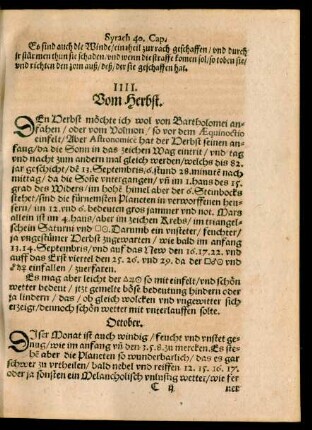 Syrach 40. Cap.
Es sind auch die Winde / ein theil zur rach geschaffen / vnd durch
jr stürmen thun sie schaden / vnd wenn die straffe komen sol / so toben sie /
vnd richten den zorn auß / deß / der sie geschaffen hat.
IIII.
Vom Herbst.
DEn Herbst möchte ich wol von Bartholomei an
fahen / oder vom Volmon / so vor dem Æquinoctio
einfelt / Aber Astronomicè hat der Herbst seinen an-
fang / da die Sonn in das zeichen Wag eintrit / vnd tag
vnd nacht zum andern mal gleich werden / welchs diß 82.
jar geschicht / dē 13. Septembris / 6. stund 28. minutē nach
mittag / da die Soñe vntergangen / vñ im 1. hauß des 15.
grad des Widers / im hohē himel aber der 6 Steinbocks
stehet / sind die fürnemsten Planeten in verworffenen heu-
sern / im 12. vnd 6. bedeuten gros jammer vnd not. Mars
allein ist im 4. hauß / aber im zeichen Krebs / im triangel-
schein Saturni vnd □☉. Darumb ein vnsteter / feuchter /
ja vngestümer Herbst zugewarten / wie bald im anfang
13. 14. Septembris / vnd auff das New den 16. 17. 22. vnd
auff das Erst viertel den 25. 26. vnd 29. da der
einfallen / zuerfaren.
Es mag aber leicht der so mit einfelt / vnd schön
wetter bedeut / jtzt gemelte böse bedeutung hindern oder
ja lindern / das / ob gleich wolcken vnd vngewitter sich
erzeigt / dennoch schön wetter mit vnterlauffen solte.
October.
DIser Monat ist auch windig / feucht vnd vnstet ge-
nug / wie im anfang vñ den 3. 5. 8. zu mercken. Es ste-
hē aber die Planeten so wunderbarlich / das es gar
schwer zu vrtheilen / bald nebel vnd reiffen 12. 15. 16. 17.
oder ja sonsten ein Melancholisch vnlustig wetter / wie fer
C ij
ner